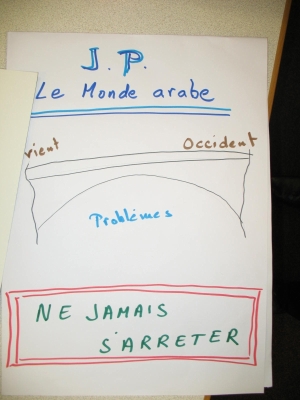 J.P.
Le Monde arabe
rient Occident
Problèmes
NE JAMAIS
S'ARRETER